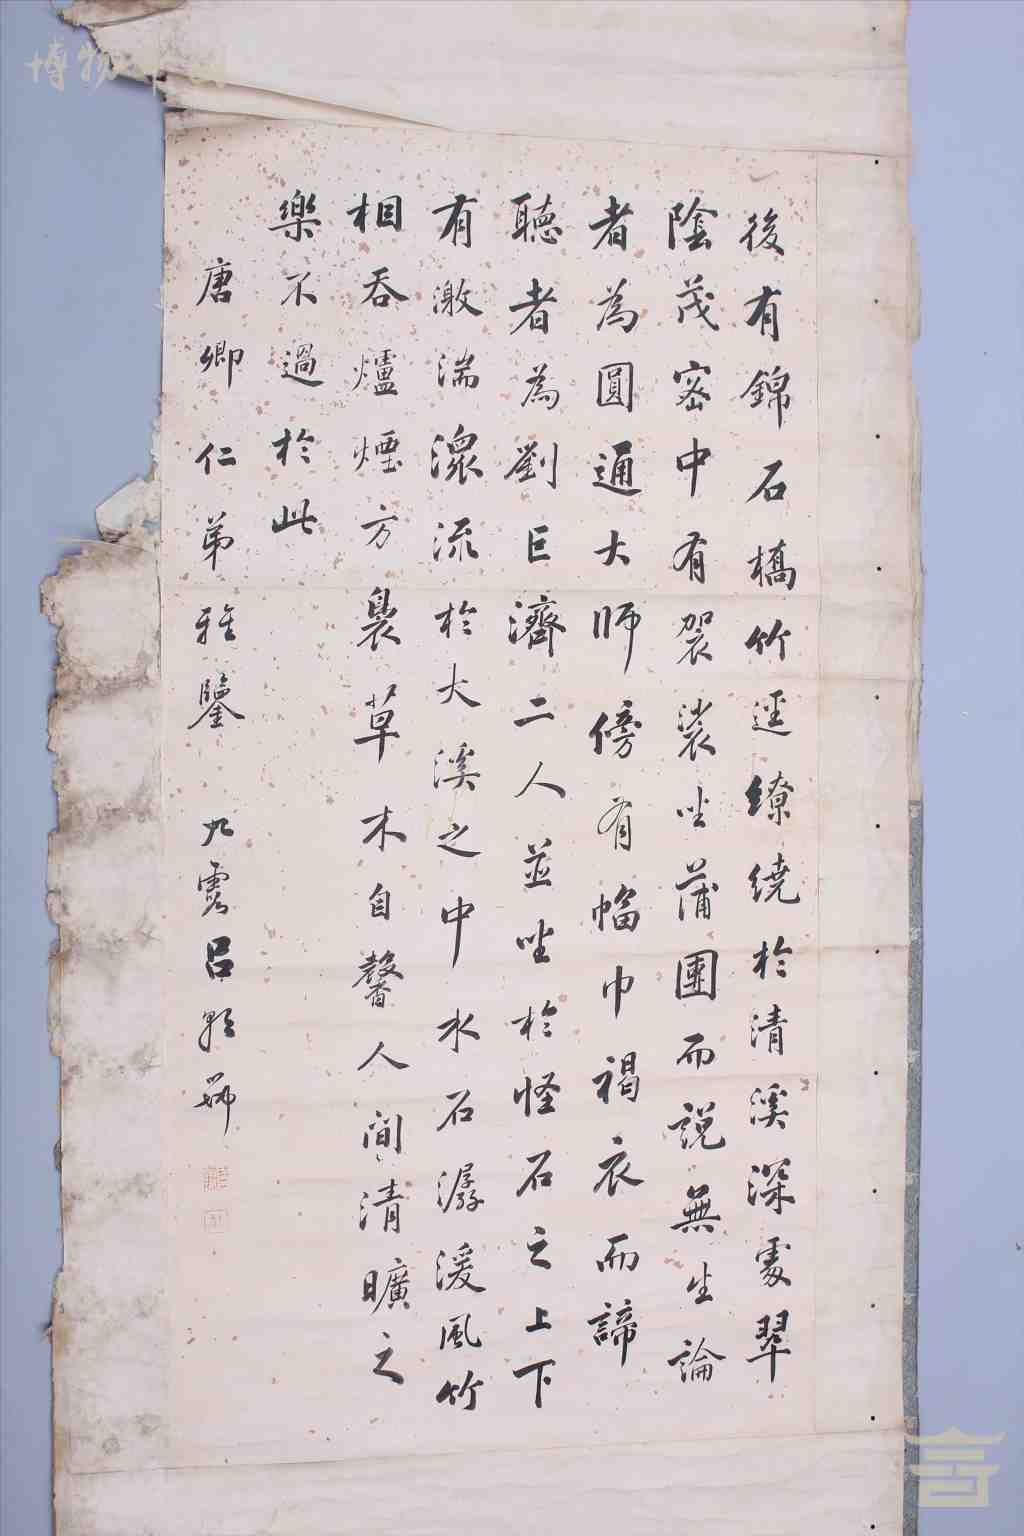 後有錦石橋竹逕繚繞於清溪深處翠
陰茂密中有袈裟坐蒲團而說無生論
者為圓通大師傍有幅巾褐衣而諦
聽者為劉巨濟二人並坐於怪石之上下
有激湍潀流於大溪之中水石潺湲風竹
相吞爐煙方裊草木自馨人間清曠之
樂不過於此
唐卿仁弟雅鑒 九霞呂
博物中國